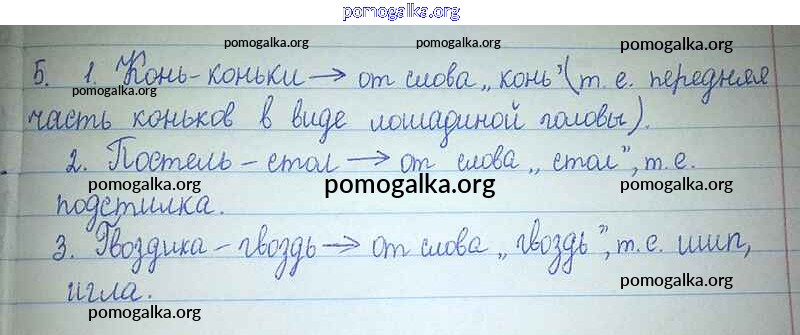 pomogalka.org
pomogalka.org pomogalka.org pomogalka.org
Б. 1. Конь-коньки → от слова „конь"(т. е. передняя
pomogalka.org
часть коньков в виде лошадиной головы).
2. Постель - стол → от слова „стол", т.е.
pomogalka.org pomogalka.org pomogalka.org
подстилка.
3. Гвоздика - гвоздь → от слова „гвоздь", т.е. шип,
игла.
pomogalka.org
pomogalka.org